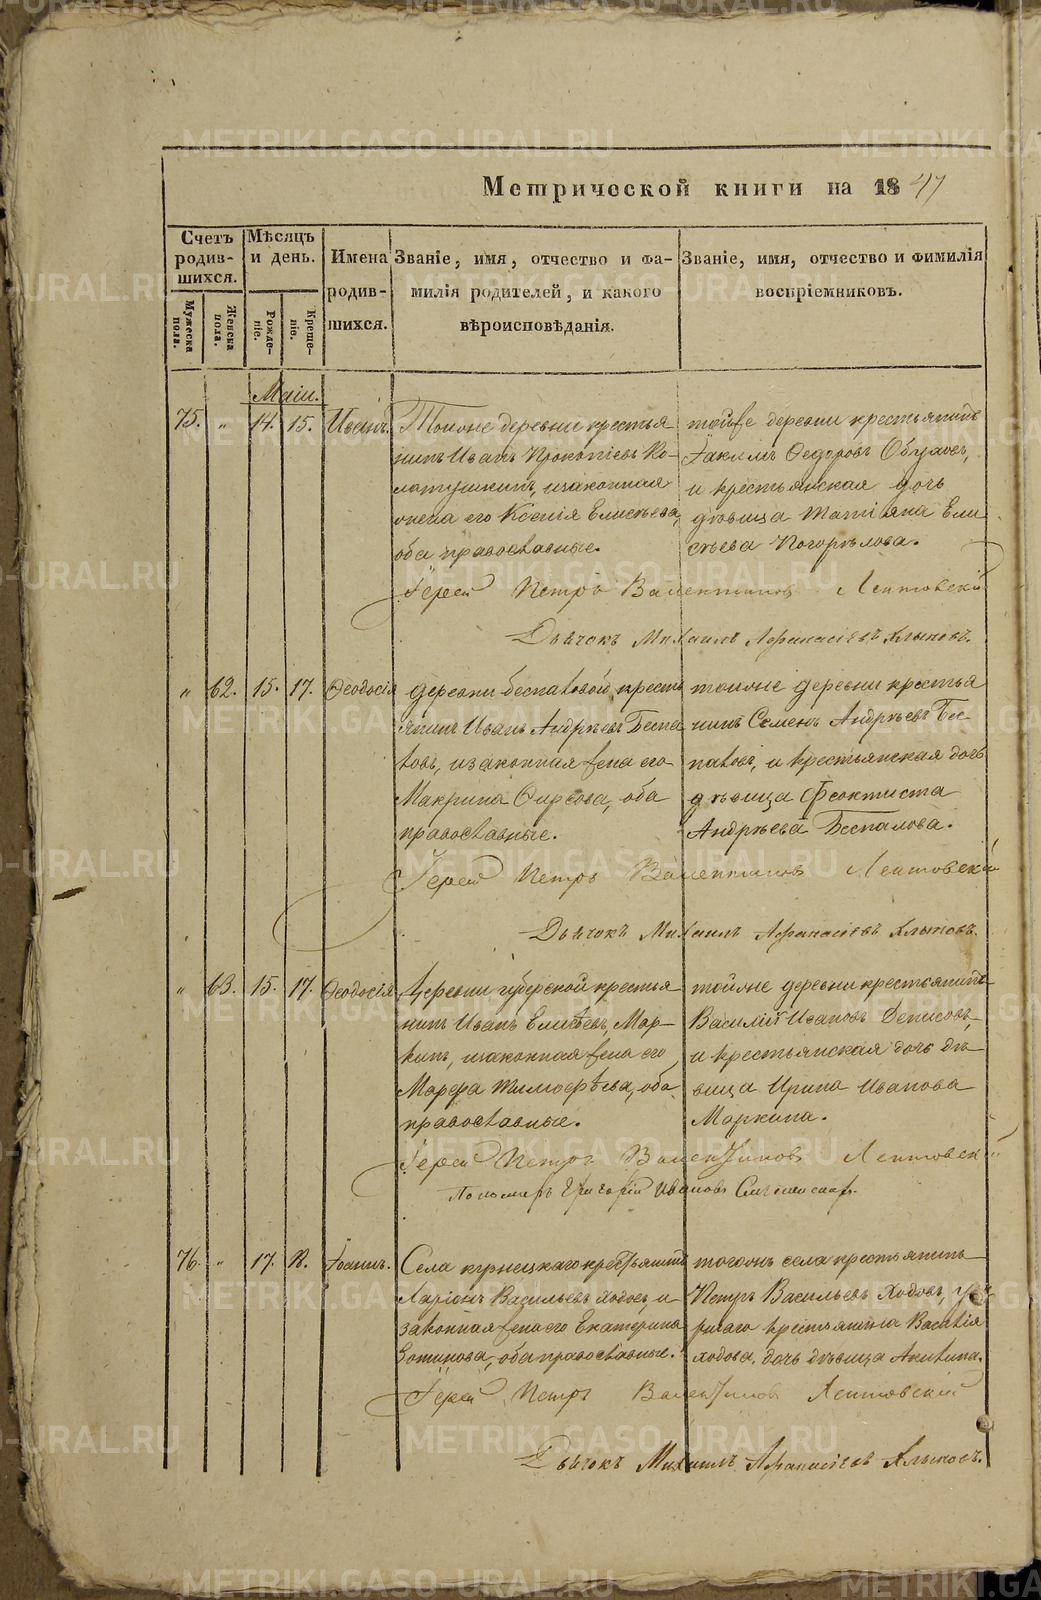 Метрической книги на 1847
Счетъ родив-шихся.
Мѣсяцъ и день.
Имена родив-шихся.
Званіе, имя, отчество и фа-
милія родителей, и какого
вѣроисповѣданія.
Званіе, имя, отчество и фимилія
воспріемниковъ.
Мужеска пола.
Женска пола.
Рожде-ніе.
Креще-ніе.
Маіи.
75. „ 14. 15. Иванъ.
Тоиоже деревни крестья
нинъ Иванъ Прокопіевъ Ко-
лотушкинъ, изаконная
жена его Ксенія Елисѣева,
оба православные.
тойже деревни крестьянинъ
Іакимъ Ѳедоровъ
и крестьянская дочь
дѣвица Татіана Ели
сѣева Погорѣлова.
Іерей Петръ Валентиновъ
Дьячокъ Михаилъ Афанасіевъ Хлыновъ.
„ 62. 15. 17. Ѳеодосія
деревни беспаловой кресть
янинъ Иванъ Андрѣевъ Беспа
ловъ, изаконная жена его
Макрина оба
православные.
тоиже деревни крестья
нинъ Семенъ Андрѣевъ Бес-
паловъ, и крестьянская дочь
дѣвица Феоктиста
Андрѣева Беспалова.
Іерей Петръ Валентиновъ
Дьячокъ Михаилъ Афанасіевъ Хлыновъ.
„ 63. 15. 17. Ѳеодосія
Деревни крестья
нинъ Иванъ Елисѣевъ Мар-
кинъ, изаконная жена его
Марфа Тимофѣева, оба
православные.
тойже деревни крестьянинъ
Василій Ивановъ Денисовъ,
и крестьянская дочь дѣ-
вица Ирина Иванова
Маркина.
Іерей Петръ Валентиновъ
Пономарь Григорій Ивановъ
76. „ 17. 18. Іоаннъ.
Села кузнецкаго крестьянинъ
Ларіонъ Васильевъ Ходовъ, и
законная жена его Екатерина
Зотикова, оба православные.
тогожъ села крестьянинъ
Петръ Васильевъ Ходовъ,
крестьянина Василія
Ходова, дочь дѣвица Акилина.
Іерей Петръ Валентиновъ
Дьячокъ Михаилъ Афанасіевъ Хлыновъ.
METRIKI.GASO-URAL.RU